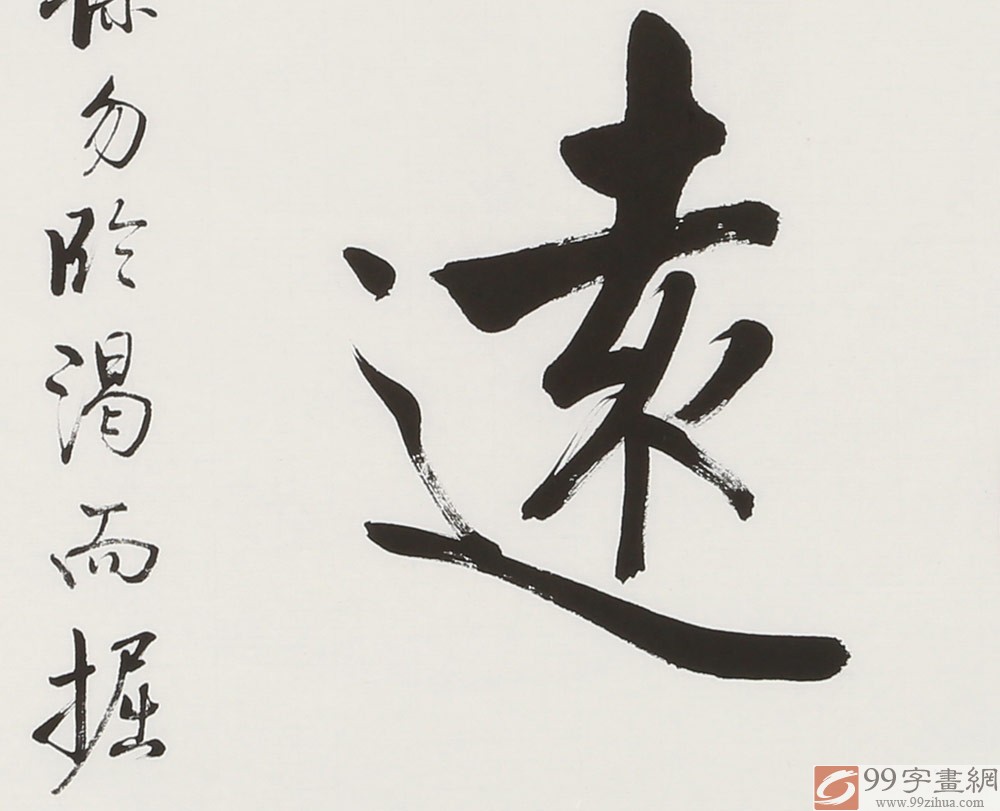 遠
勿臨渴而掘
99字畫網
www.99zihua.com